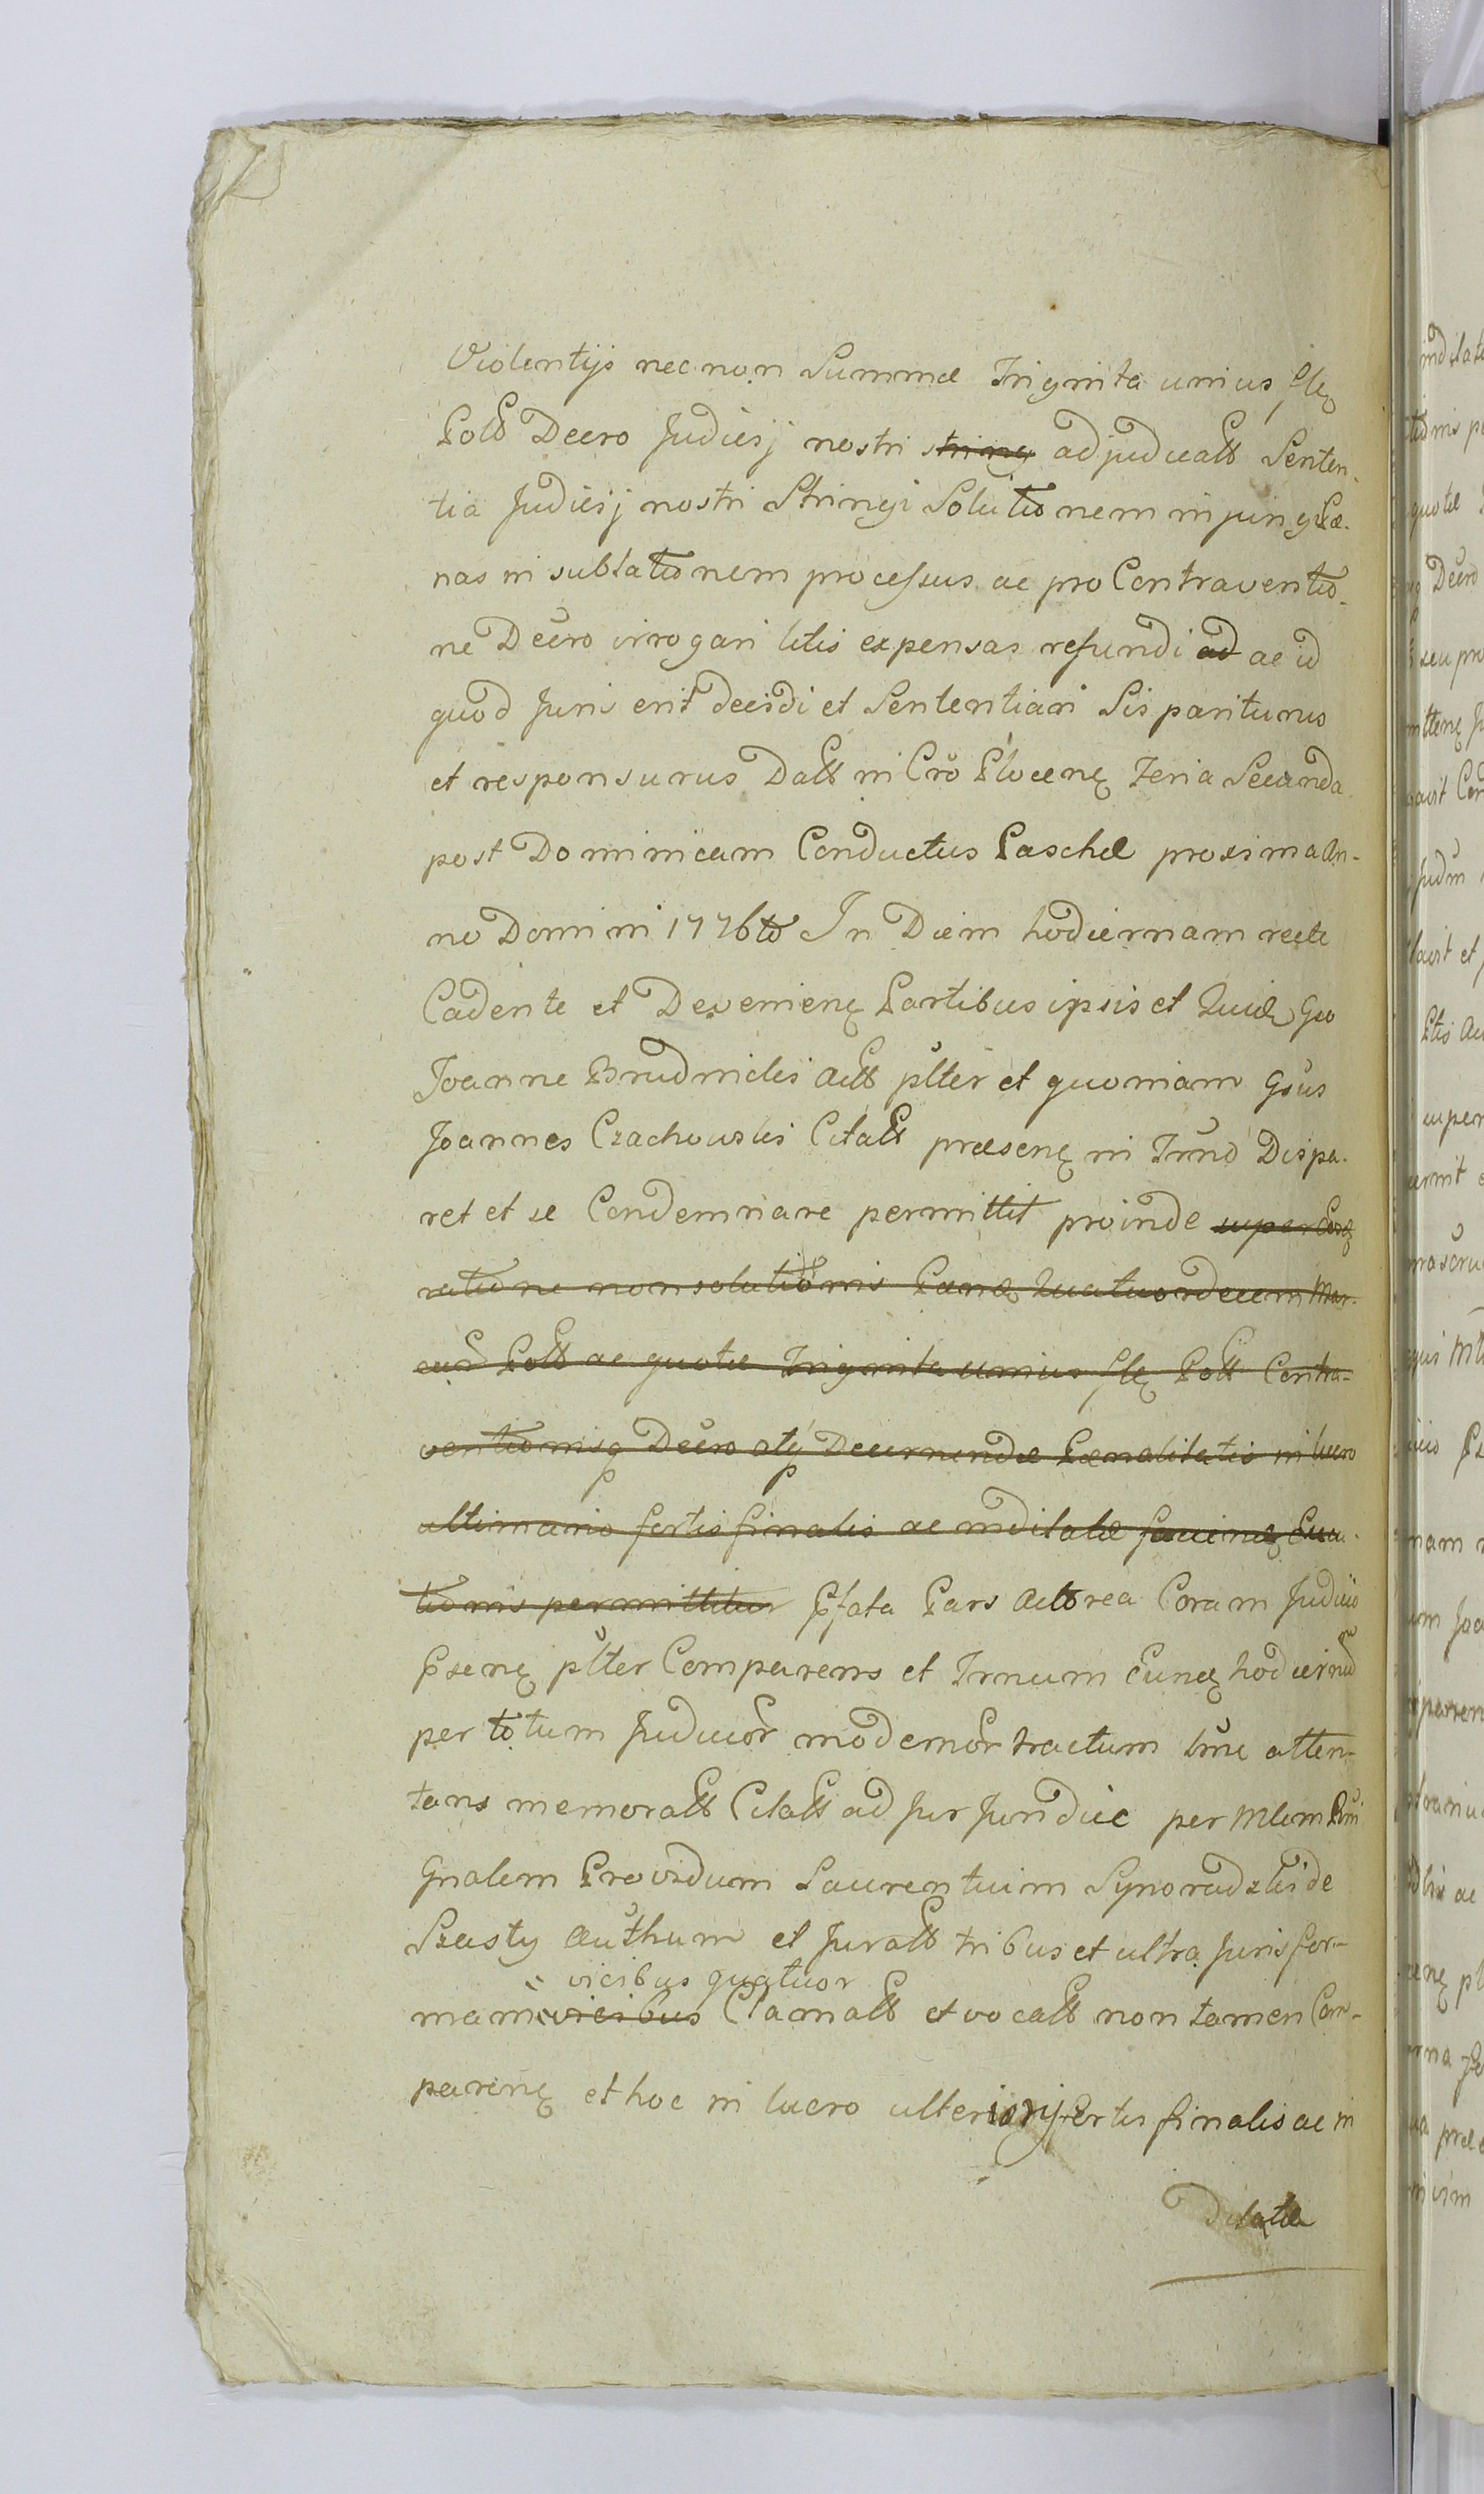 Violentijs necnon Summæ Triginta unius fle
Poll Decro Judicij nostri string adjudicatt Senten-
tia Judicij nostri Stringi Solutionem injungi Pæ-
nas in sublationem processus ac pro Contraventio-
ne Decro irrogari litis expensas refundi ad ac id
quod Juris erit decidi et Sententiari Sis pariturus
et responsurus Datt in Cro Plocen Feria Secunda
post Dominicam Conductus Paschæ proxima An-
no Domini 1776to In Diem hodiernam recte
Cadente et Devenien Partibus ipsis et Quid Gso
Joanne Brudnicki Actt plter et quoniam Gsus
Joannes Czachowski Citatt præsen in Trno Dispa-
ret et se Condemnare permittit proinde super Eosq
ratione non solutionis Pænæ Quatuordecem Mar-
car Poll ac quotæ Triginta unius fle Poll Contra-
ventionisq Decro atq Decernendæ Pænalitatis in lucro
ultimario fertis finalis ac indilatæ facien Exa-
tionis permittitur Pfata Pars Actorea Coram Judicio
Psen plter Comparens et Trnum eund hodiernu
per totum Judicior modernor tractum bne atten-
tans memoratt Citatt ad Jur Juridice per Mlem Rni
Gnalem Providum Laurentium Synoradzki de
Szasty Authum et Juratt tribus et ultra Juris for-
vicibus quatuor
mam vicibus Clamatt et vocatt non tamen Com-
paren et hoc in lucro ulteriorj fertis finalis ac in
dilatæ